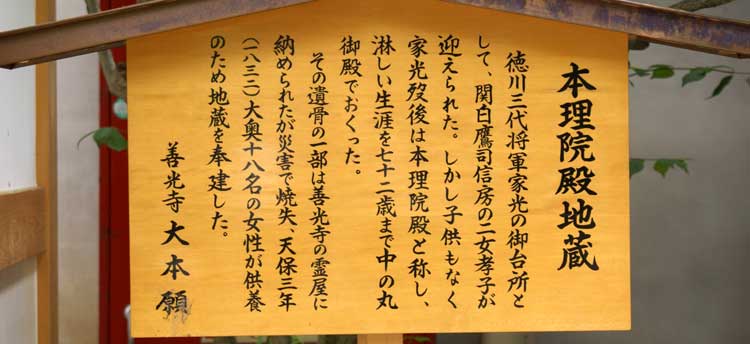 本理院殿地蔵
徳川三代将軍家光の御台所と
して、関白鷹司信房の二女孝子が
迎えられた。しかし子供もなく
家光歿後は本理院殿と称し、
淋しい生涯を七十二歳まで中の丸
御殿でおくった。
その遺骨の一部は善光寺の霊屋に
納められたが災害で焼失、天保三年
(一八三二)大奥十八名の女性が供養
のため地蔵を奉建した。
善光寺 大本願